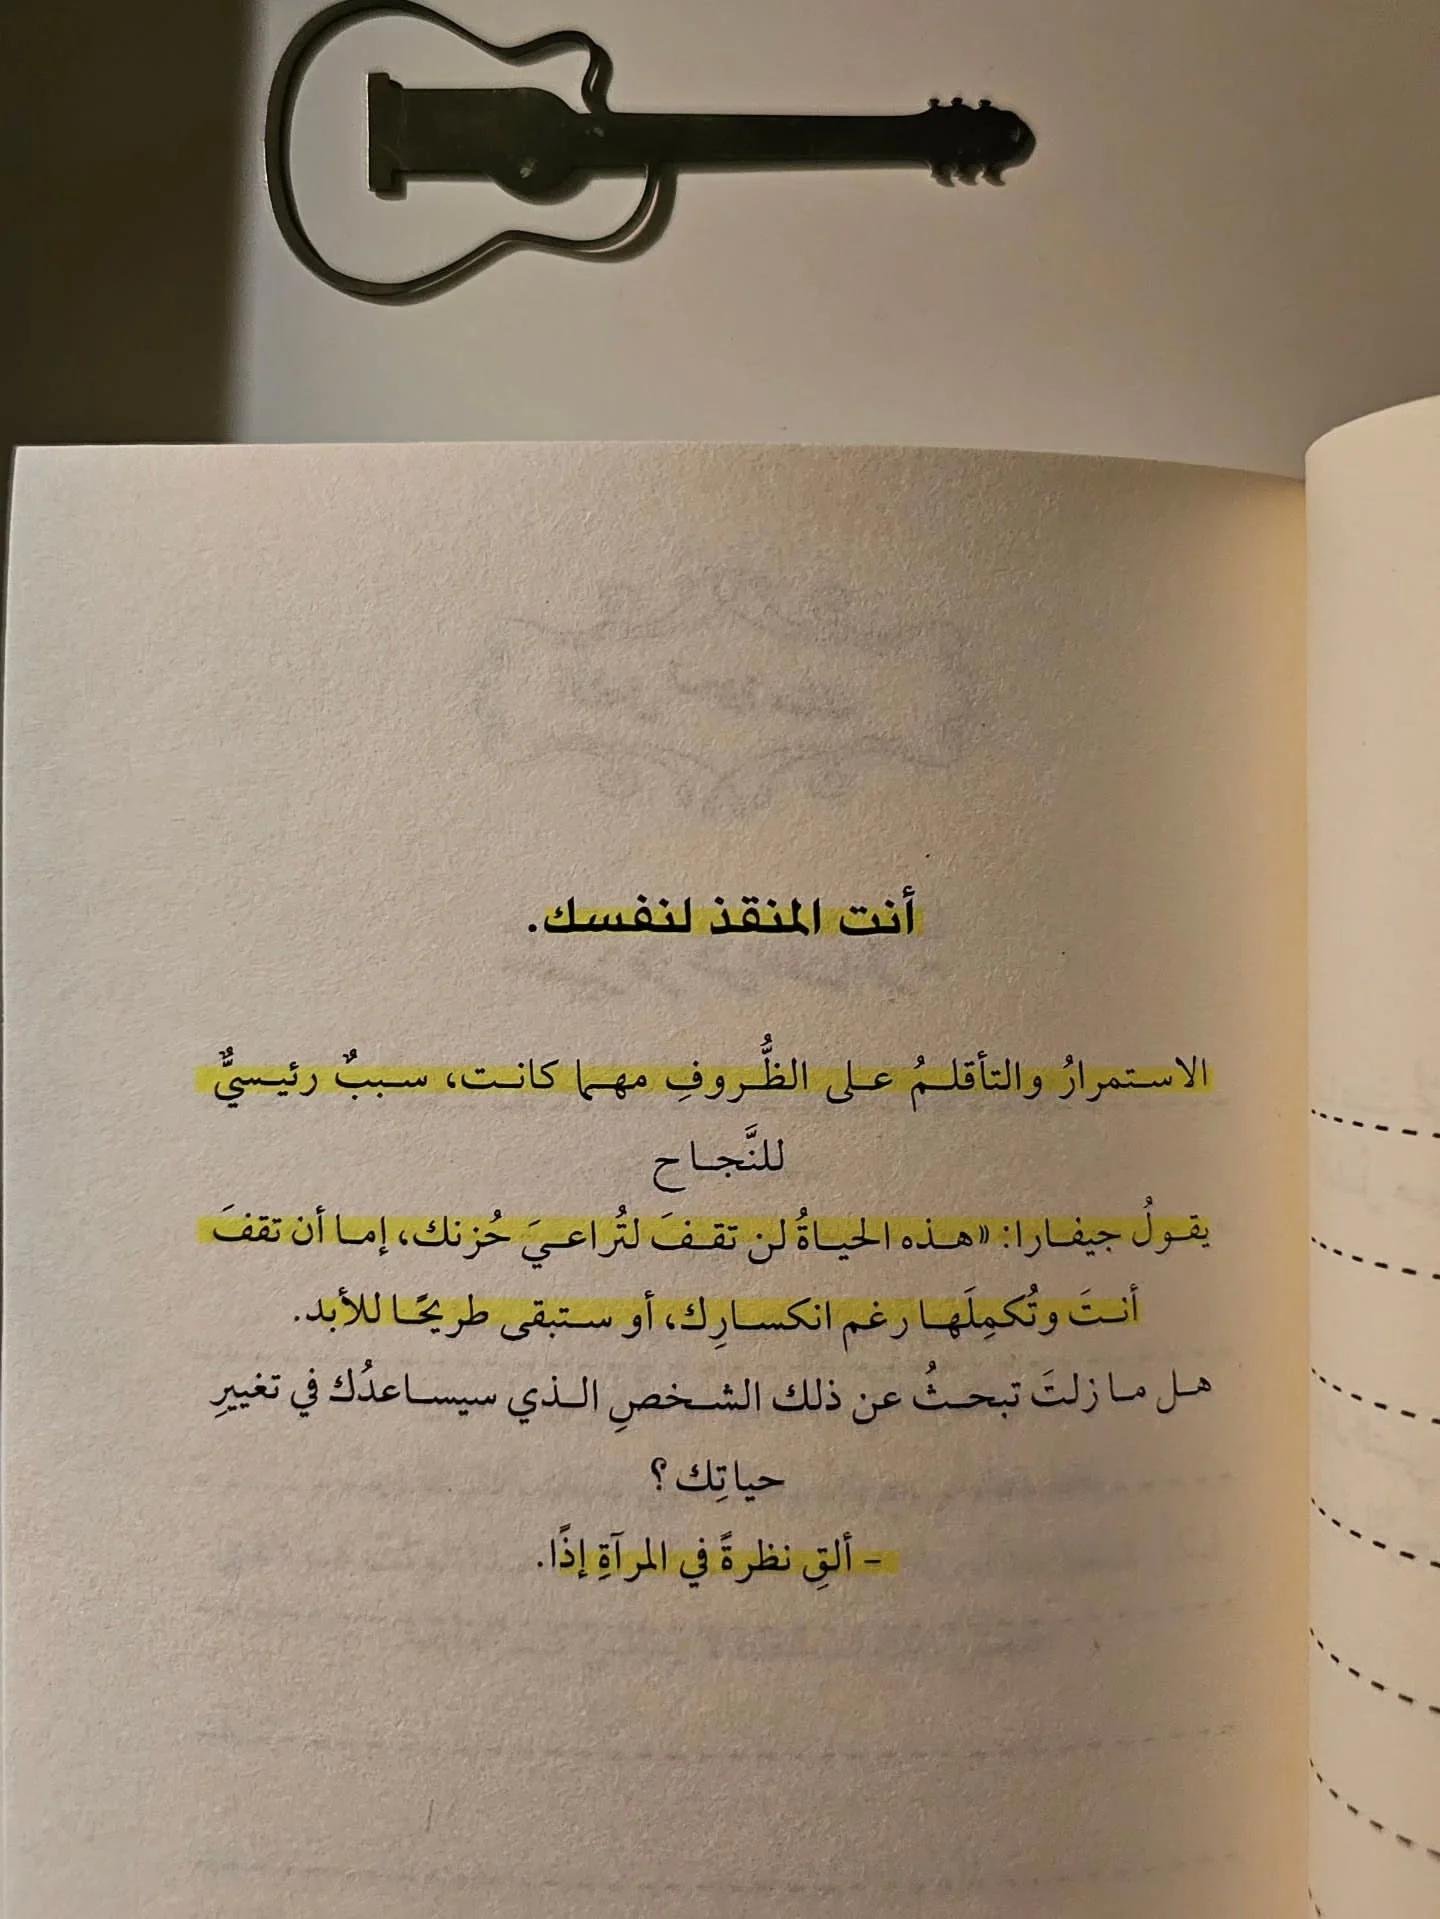 أنت المنقذ لنفسك.
الاستمرارُ والتأقلمُ على الظُّروفِ مهما كانت، سببٌ رئيسيٌّ
للنَّجاح
يقولُ جيفارا: «هذه الحياةُ لن تقفَ لتُراعيَ حُزنك، إما أن تقفَ
أنتَ وتُكمِلَها رغم انكسارِك، أو ستبقى طريحًا للأبد.
هل ما زلتَ تبحثُ عن ذلك الشخصِ الذي سيساعدُك في تغييرِ
حياتِك؟
- ألقِ نظرةً في المرآةِ إذًا.